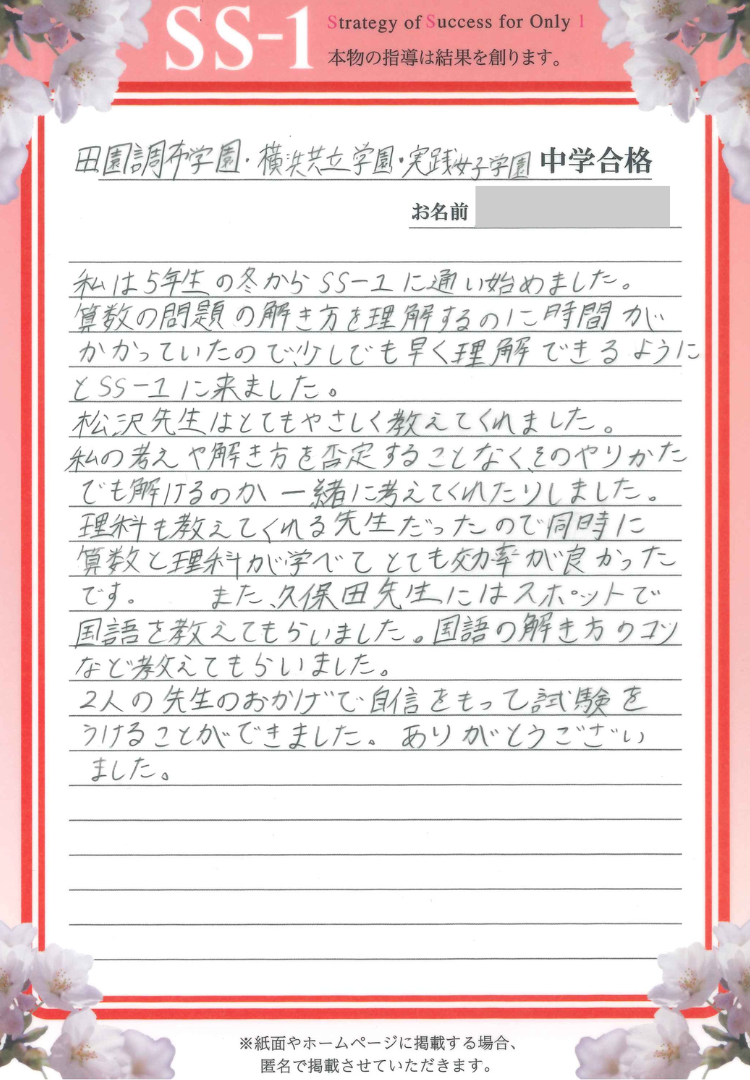 SS-1
Strategy of Success for Only 1
本物の指導は結果を創ります。
田園調布学園・横浜共立学園・実践女子学園 中学合格
お名前
私は5年生の冬からSS-1に通い始めました。
算数の問題の解き方を理解するのに時間が
かかっていたので、少しでも早く理解できるように
とSS-1に来ました。
松沢先生はとてもやさしく教えてくれました。
私の考えや解き方を否定することなく、そのやりかた
でも解けるのか一緒に考えてくれたりしました。
理科も教えてくれる先生だったので同時に
算数と理科が学べてとても効率が良かった
です。 また、久保田先生にはスポットで
国語を教えてもらいました。国語の解き方のコツ
など教えてもらいました。
2人の先生のおかげで自信をもって試験を
うけることができました。ありがとうござい
ました。
※紙面やホームページに掲載する場合、
匿名で掲載させていただきます。